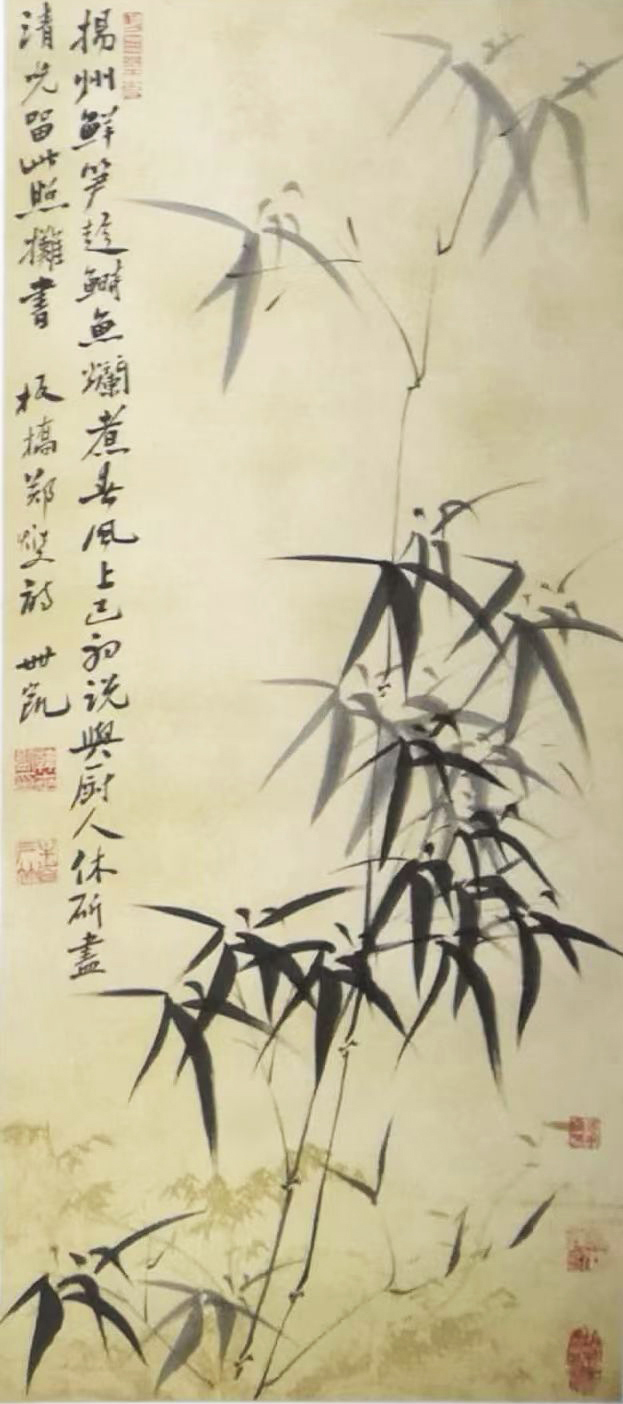 揚州鮮笋趁鰣魚爛煮春風上巳初說與厨人休斫盡
清光留此照攤書　板橋鄭燮詩　世凱